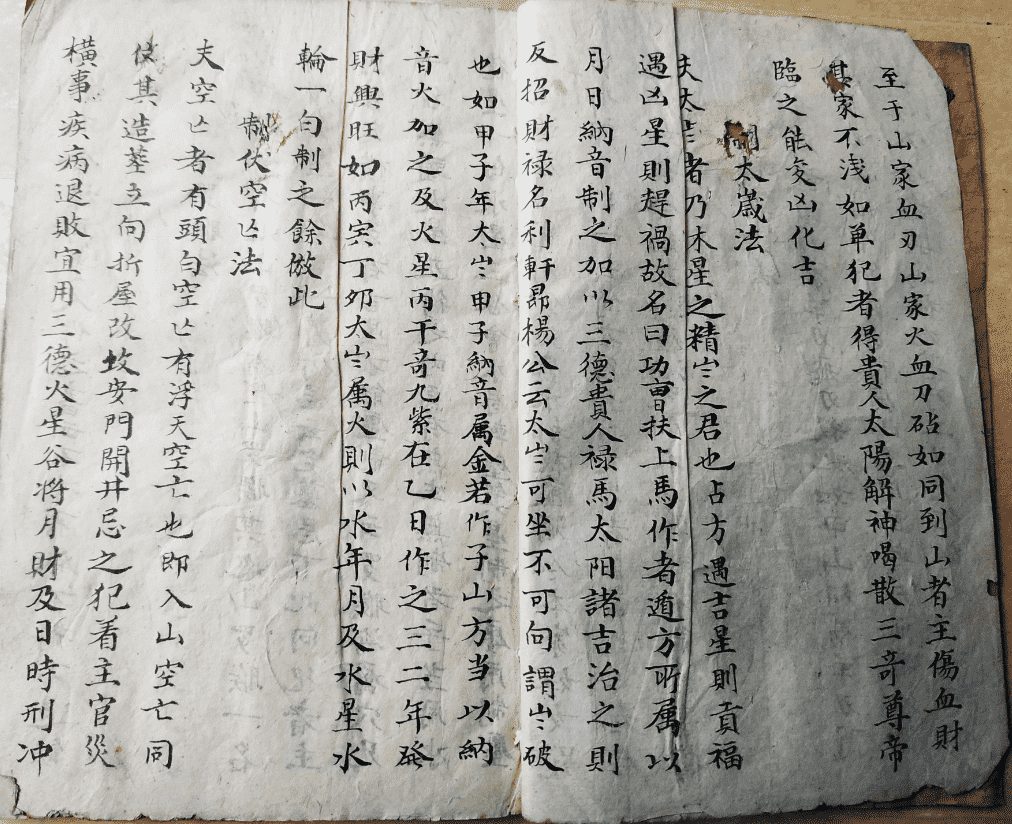 至于山家血刃山家火血刀砧如同到山者主傷血財
其家不浅如单犯者得貴人太陽解神喝散三奇尊帝
臨之能变凶化吉
太歲法
夫太岁者乃木星之精岁之君也占方遇吉星則貢福
遇凶星則趕禍故名曰功曹扶上馬作者遁方所属以
月日納音制之加以三德貴人禄馬太阳諸吉治之則
反招財禄名利軒昂楊公云太岁可坐不可向謂岁破
也如甲子年太岁甲子納音属金若作子山方当以納
音火加之及火星丙干奇九紫在乙日作之三二年發
財興旺如丙寅丁夘太岁属火則以水年月及水星水
輪一白制之餘倣此
制伏空亡法
夫空亡者有頭白空亡有浮天空亡也即入山空亡同
仗其造塟立向折屋改坟安門開井忌之犯着主官災
橫事疾病退敗宜用三德火星谷将月財及日時刑冲